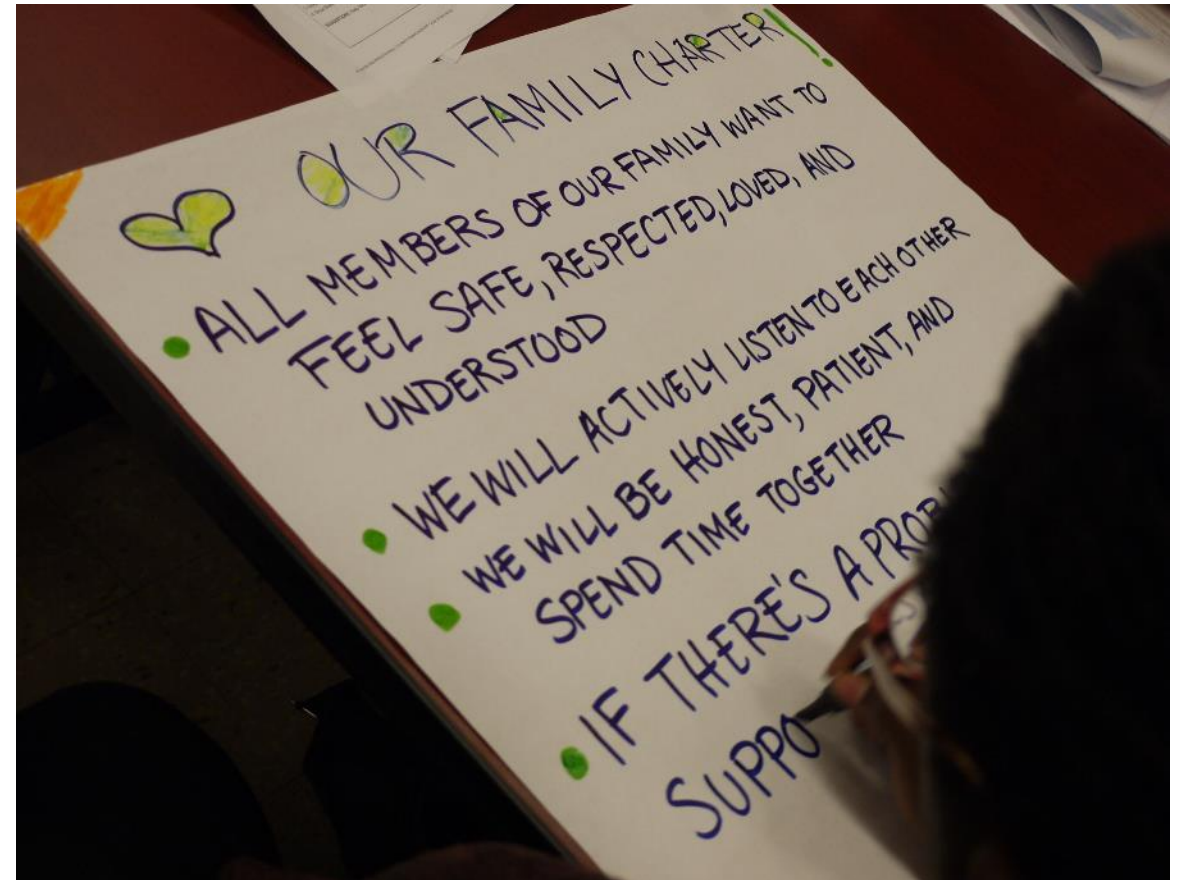 OUR FAMILY CHARTER!
ALL MEMBERS OF OUR FAMILY WANT TO
FEEL SAFE, RESPECTED, LOVED, AND
UNDERSTOOD
WE WILL ACTIVELY LISTEN TO EACH OTHER
WE WILL BE HONEST, PATIENT, AND
SPEND TIME TOGETHER
IF THERE'S A PROB
SUPPO